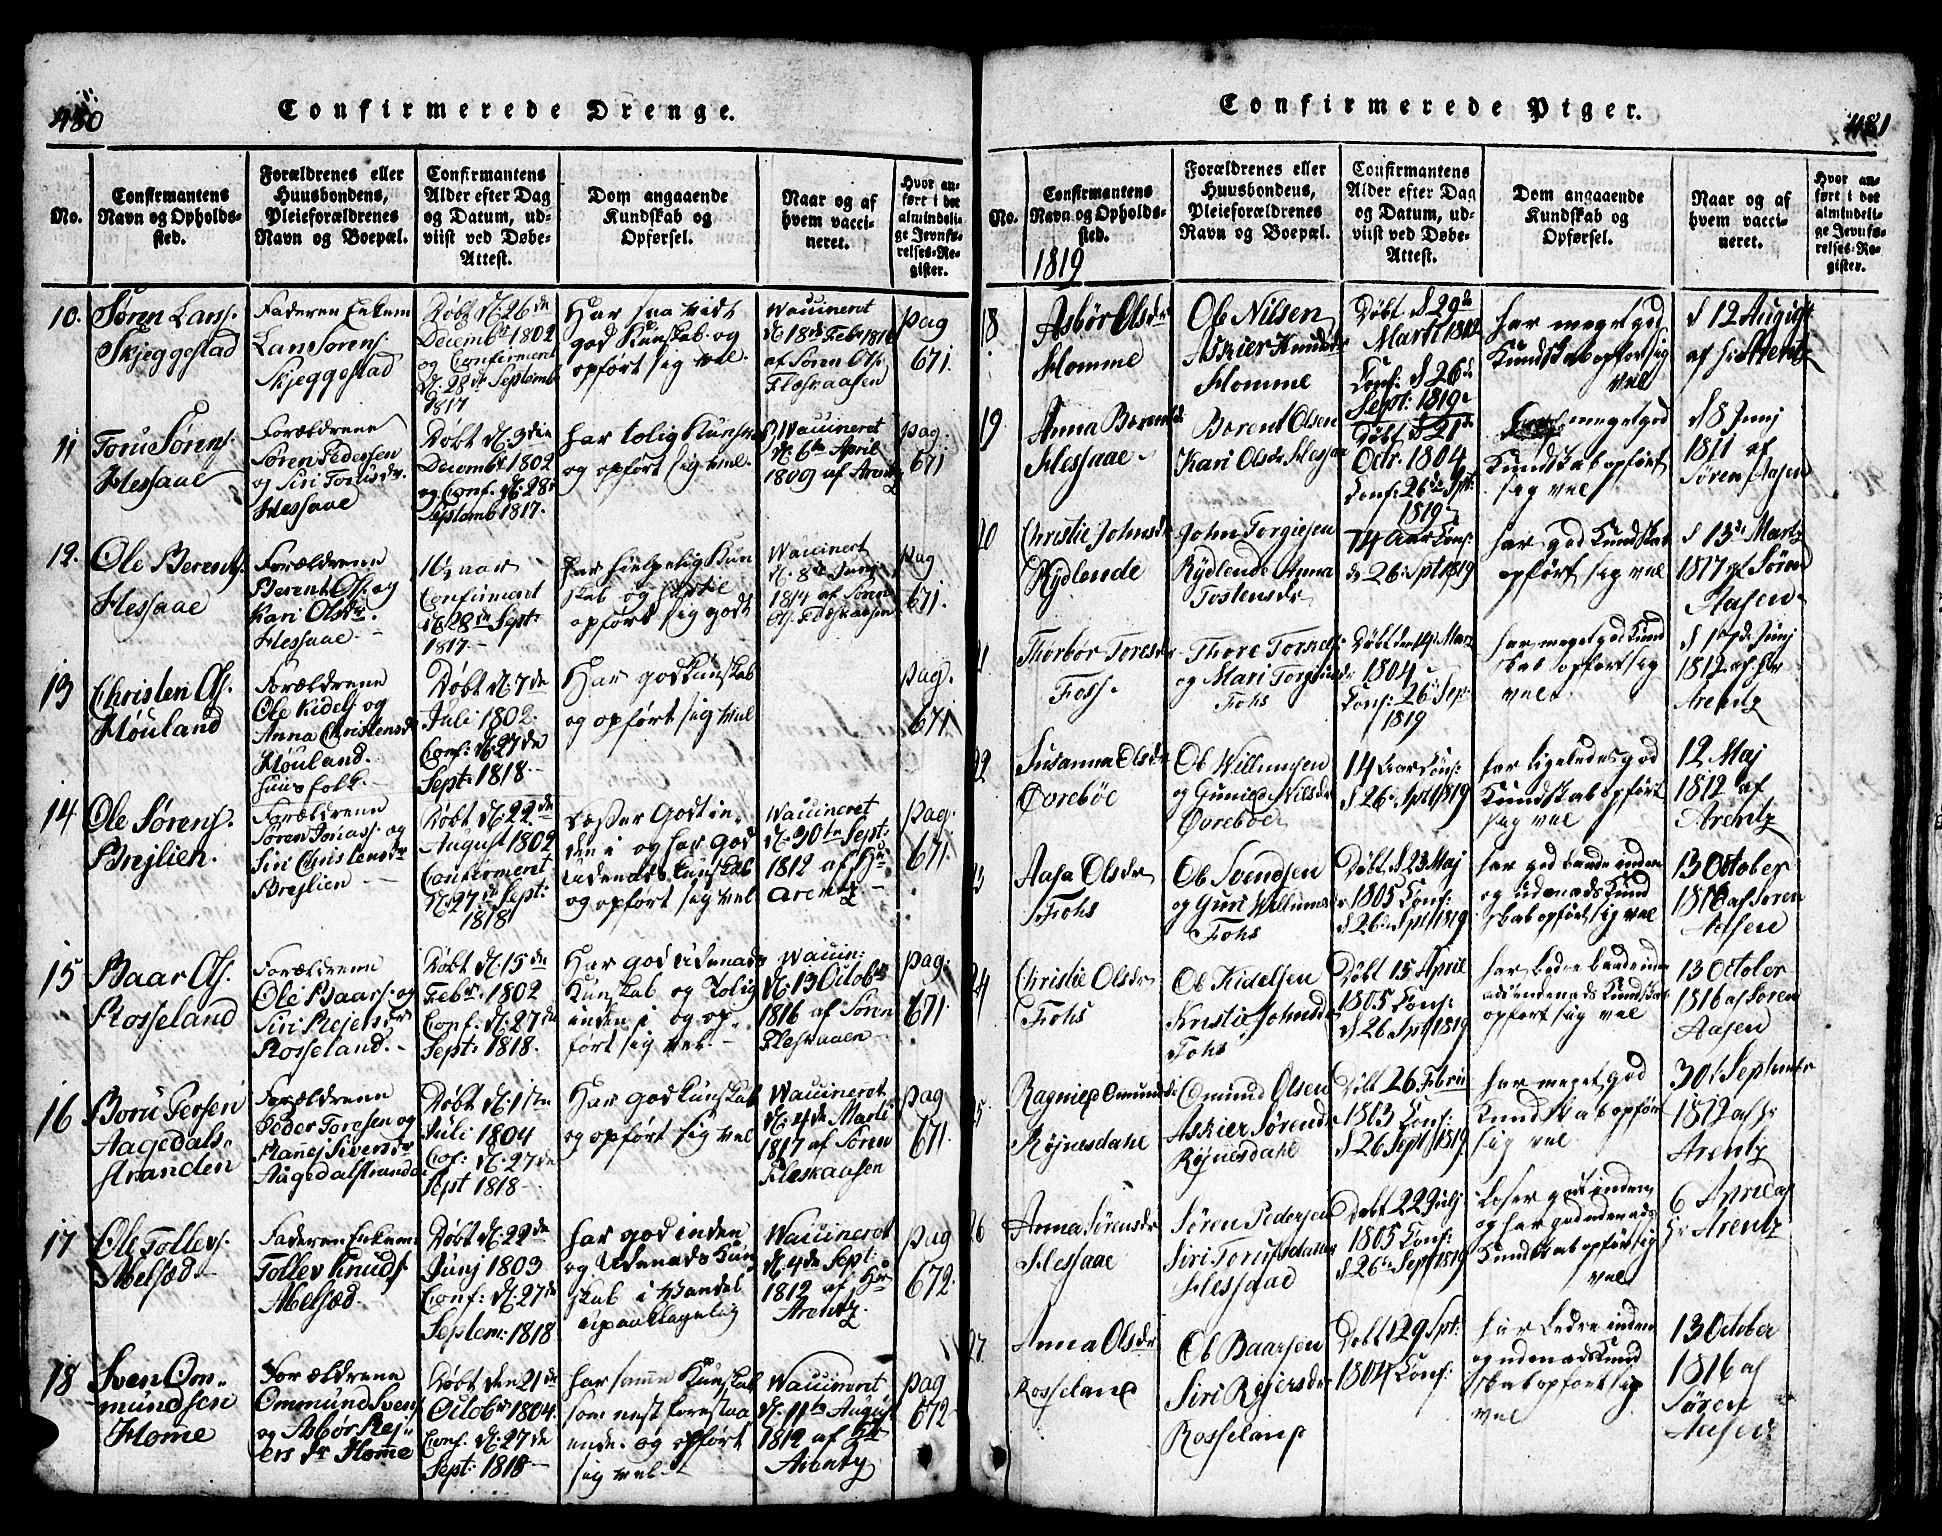 480
Confirmerede Drenge.
No.
Confirmantens
Navn og Opholds-
sted.
Forældrenes eller
Huusbondens,
Pleieforældrenes
Navn og Boepæl.
Confirmantens
Alder efter Dag
og Datum, ud-
viist ved Døbe-
Attest.
Dom angaaende
Kundskab og
Opførsel.
Naar og af
hvem vacci-
neret.
Hvor an-
ført i det
almindeli-
ge Jevnfø-
relses-Re-
gister.
10.
Søren Lars.
Skjeggestad
Faderen Enkem
Lars Sørens.
Skjeggestad
Døbt d. 26de
Decembr 1802
og Confirmeret
d. 28de Septemb
1817
Har saa vidt
god Kunskab og
opført sig vel.
Waccineret
d. 18de Febr 1816
af Søren Ols.
Fleskaasen
Pag
671.
11
Sørens.
Flessaae
Forældrene
Søren Pedersen
og Siri
Flessaae
Døbt d. 3die
Decembr 1802
og Conf. d. 28de
Septemb 1817.
har tolig Kunska
og opført sig vel.
Waccineret
d. 6te April
1809 af Arentz
pag.
671
12.
Ole Berents.
Flessaae
Forældrene
Berent Ols. og
Kari Olsdr.
Flessaae.
16½ aar
Confirmeret
d. 28de Sept:
1817.
har hielpelig Kun
skab og
opført sig godt
Waccinert
d. 8de
1814 af Søren
Ols. Fleskaasen
Pag
671.
13
Christen Ols.
Høuland
Forældrene
Ole Kidels. og
Anna Christensd
Høuland.
Huusfolk.
Døbt d. 7de
Juli 1802.
Conf: d. 27de
Sept: 1818
Har god Kunskab
og opført sig vel
Pag.
671
14
Ole Sørens.
Brejlien.
Forældrene
Søren Jonass. og
Siri Christensdr
Brejlien
Døbt d. 22de
August 1802
Confirmert
d. 27de Sept:
1818
Læser godt in,
den i og har god
udenads Kunskab
og opført sig vel
Waccineret
d. 30te Sept:
1812 af Hr.
Arentz
Pag.
671.
15
Baar Ols.
Rosseland
Forældrene
Ole Baars. og
Siri Rejersdr
Rosseland.
Døbt d. 15de
Febr. 1802
Conf: d. 27de
Sept: 1818.
Har god udenads
Kunskab og Tolig
inden i og op-
ført sig vel.
Waccin:
d. 13 Octobr
1816 af Søren
Fleskaaen
pag.
671.
16
Persen
Aagedals-
stranden
Forældrene
Peder Toresen og
Siversdr
Aagedalstranden
Døbt d. 1ste
Juli 1804
Conf: d. 27de
Sept 1818
Har god Kunskab
og opført sig vel
Waccineret
d. 4de Marti
1817 af Søren
Fleskaasen
pag
671.
17
Ole Tollevs.
Abelsæd
Faderen Enkem
Tollev Knuds
Abelsæd.
Døbt d. 22de
Junj 1803
Conf: d. 27de
Septem: 1818
har god inden
og Udenads Kun
skab i Wandel
upaaklagelig
Waccineret
d. 4de Sept:
1812 af Hr
Arentz.
pag
672.
18
Sven Om-
mundsen
Home
Forældrene
Ommund Svens
og Asbør Rej-
ersdr Home
Døbt den 21de
Octobr 1804.
Conf. d. 27de
Sept: 1818
har samme Kunskab
som nest forestaa
ende. og opført
sig vel.
Waccineret
d. 11te August
1812 af Hr
Arentz
pag
672
Confirmerede Piger.
481
No.
Confirmantens
Navn og Opholds-
sted.
1819
Forældrenes eller
Huusbondens,
Pleieforældrenes
Navn og Boepæl.
Confirmantens
Alder efter Dag
og Datum, ud-
viist ved Døbe-
Attest.
Dom angaaende
Kundskab og
Opførsel.
Naar og af
hvem vacci-
neret.
Hvor an-
ført i det
almindeli-
ge Jevnfø-
relses-Re-
gister.
18
Asbør Olsdr
Homme
Ole Nilsen
Askier Knudsdr
Homme
Døbt d 29de
Marti
Conf: d 26de
Sept: 1819
har meget god
Kundskab opfør sig
vel
d 12 August
af Hr Arentz
19
Anna Berentsd
Flessaae
Berent Olsen
Kari Olsdr Flessaa
Døbt d 21de
Octr. 1804
Conf: 26de Spt:
1819
meget god
Kundskab opført
sig vel
d 8 Junj
1811 af
Søren Aasen
20
Christie Johnsdr
Rydlende
John Torgiesen
Rydlende Anna
Tostensdr
14 Aar Conf:
d 26 Spt 1819
har god Kundskab
opført sig vel
d 13de Martz
1817 af Søren
Aasen
21
Thorbor Toresdr
Foss.
Thore
og Mari
Fohs
Døbt den 14de Martz
1804
Conf: 26de Sep:
1819
har meget god Kund
skab opført sig
vel.
d 17de Junj
1812 af Hr
Arentz
22
Susanna Olsdr
Øvrebøe
Ole Willumsen
og Gunild Nilsdr
Øvrebøe
14 Aar Conf:
d 26de Spt 1819
har ligeledes god
Kundskab opført
sig vel
12 Maj
1812 af
Arentz
23
Aasa Olsdr
Fohs
Ole Svendsen
og Guri Willumsd
Fohs
Døbt d 23 Maj
1805 Conf:
d 26de Spt 1819
har god baade inden
og udenads Kund
skab opført sig vel
13 October
1816 af Søren
Aasen
24
Christie Olsdr
Fohs
Ole Kidelsen
Kristie Johnsdr
Fohs
Døbt 15 April
1805 Conf:
d 26 Spt 1819
har bedre baade inden
Kundskab
opført sig vel
13 October
1816 af Søren
Aasen
25
Omundsd
Røjnesdahl
Omund Olsen
Askier Sørensd
Røjnesdahl
Døbt 26 Febru
1803 Conf:
d 26 Sept 1819
har meget god
Kundskab opført
sig vel
30 September
1812 af Hr
Arentz
26
Anna Sørensdr
Flessaae
Søren Pedersen
Siri
Flessaae
Døbt 22 Julj
1805 Conf:
d 26de Sept 1819
Læser godt inden
og har god udenads
Kundskab opfør sig
vel
6 April af
Hr Arentz
27
Anna Olsdr
Rosseland
Ole Baarsen
Siri Rejersdr
Rosseland
Døbt 29 Spt:
1804 Conf:
har bedre inden
og udenads Kund
skab opført sig
vel
13 October
1816 af
Søren
Aasen